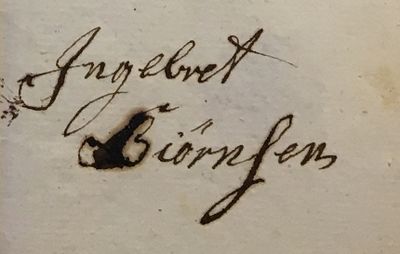 Ingebret
Biörnsen